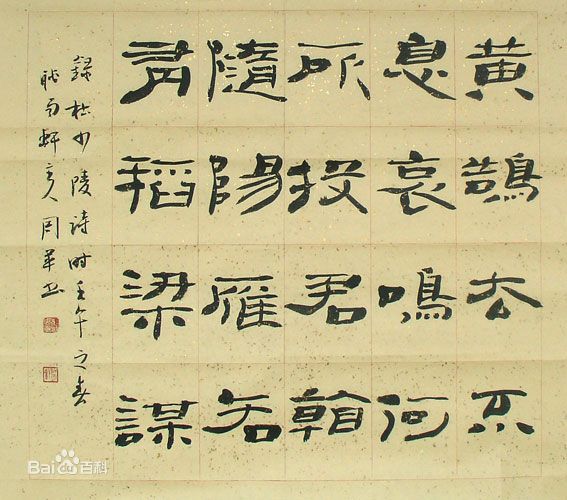 黄鵠去不
息哀鳴何
所投君看
隨陽雁各
有稻粱謀
錄杜少陵詩時壬午之春
軒主人周華书
Bai百科